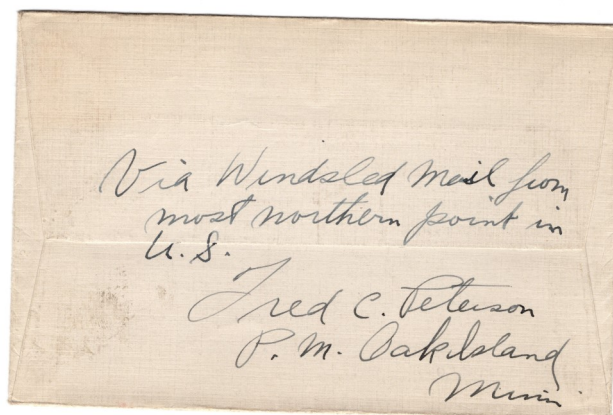 Via Windsled Mail from
most northern point in
U.S.
Fred C. Peterson
P.M. Oak Island
Minn